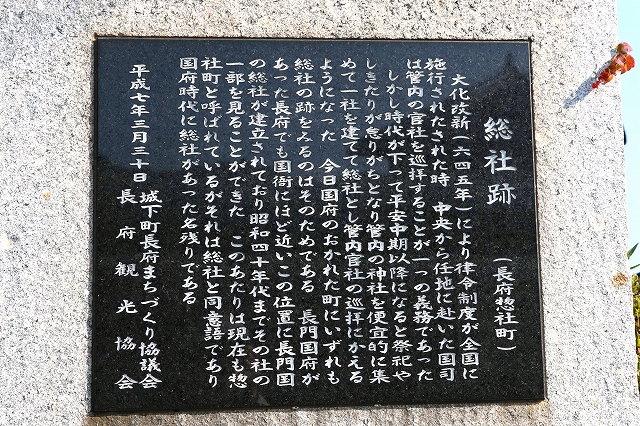 総社跡
（長府惣社町）
大化改新（六四五年）により律令制度が全国に
施行されたされた時　中央から任地に赴いた国司
は管内の官社を巡拝することが一つの義務であった
しかし時代が下って平安中期以降になると祭祀や
しきたりが怠りがちとなり管内の神社を便宜的に集
めて一社を建てて総社とし管内官社の巡拝にかえる
ようになった　今日国府のおかれた町にいずれも
総社の跡をみるのはそのためである　長門国府が
あった長府でも国衙にほど近いこの位置に長門国
の総社が建立されており昭和四十年代までその社の
一部を見ることができた　このあたりは現在も惣
社町と呼ばれているがそれは総社と同意語であり
国府時代に総社があった名残りである
平成七年三月三十日
城下町長府まちづくり協議会
長府観光協会